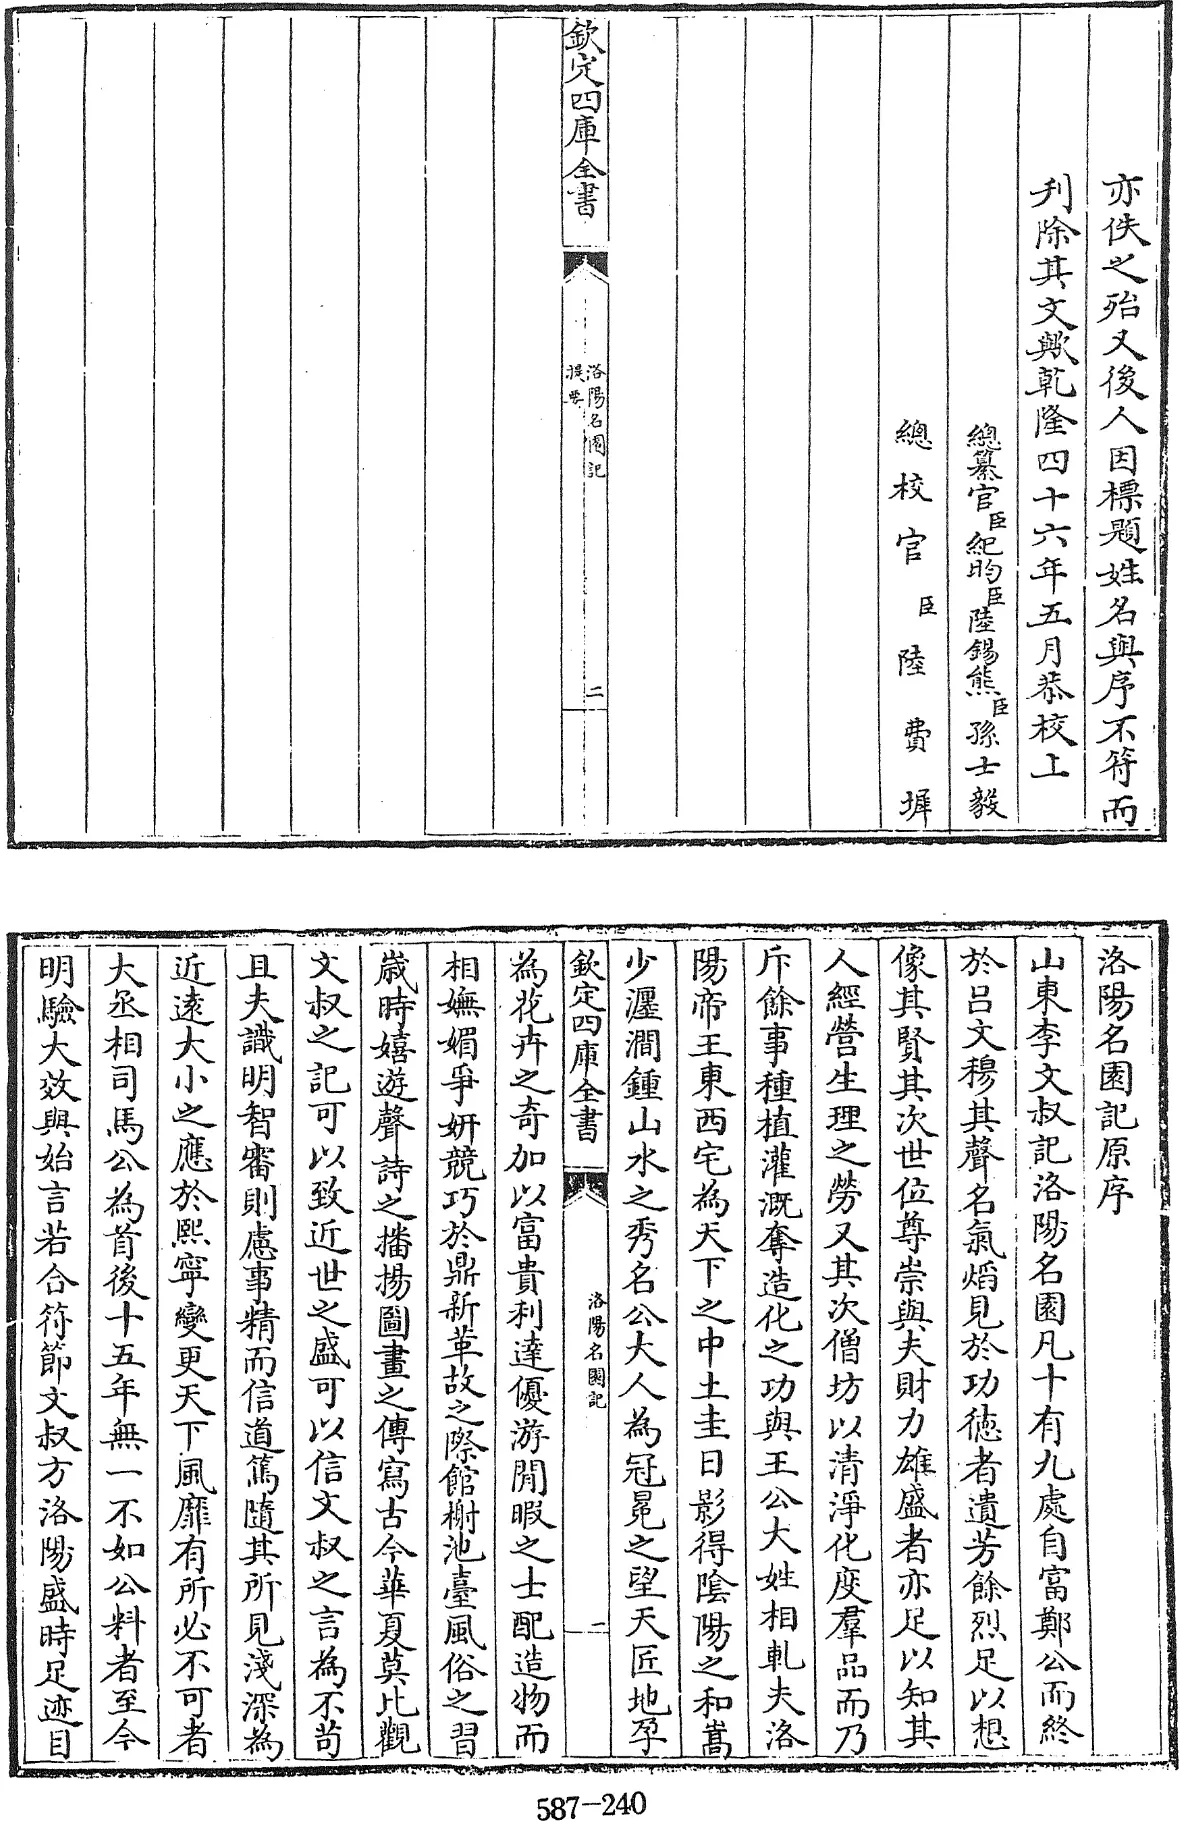 亦佚之殆又後人因標題姓名與序不符而
刋除其文歟乾隆四十六年五月恭校上
總纂官臣紀昀臣陸錫熊臣孫士毅
總校官臣陸費墀
欽定四庫全書
洛陽名園記
提要
二
洛陽名園記原序
山東李文叔記洛陽名園凡十有九處自富鄭公而終
於吕文穆其聲名氣焰見於功徳者遺芳餘烈足以想
像其賢其次世位尊崇與夫財力雄盛者亦足以知其
人經營生理之勞又其次僧坊以清淨化度羣品而乃
斥餘事種植灌溉奪造化之功與王公大姓相軋夫洛
陽帝王東西宅為天下之中土圭日影得陰陽之和嵩
少瀍澗鍾山水之秀名公大人為冠冕之望天匠地孕
欽定四庫全書
洛陽名園記
一
為花卉之奇加以富貴利達優游閒暇之士配造物而
相嫵媚爭妍競巧於鼎新革故之際館榭池臺風俗之習
嵗時嬉遊聲詩之播揚圖畫之傳寫古今華夏莫比觀
文叔之記可以致近世之盛可以信文叔之言為不苟
且夫識明智審則慮事精而信道篤隨其所見淺深為
近遠大小之應於熙寧變更天下風靡有所必不可者
大丞相司馬公為首後十五年無一不如公料者至今
明驗大效與始言若合符節文叔方洛陽盛時足迹目
587-240